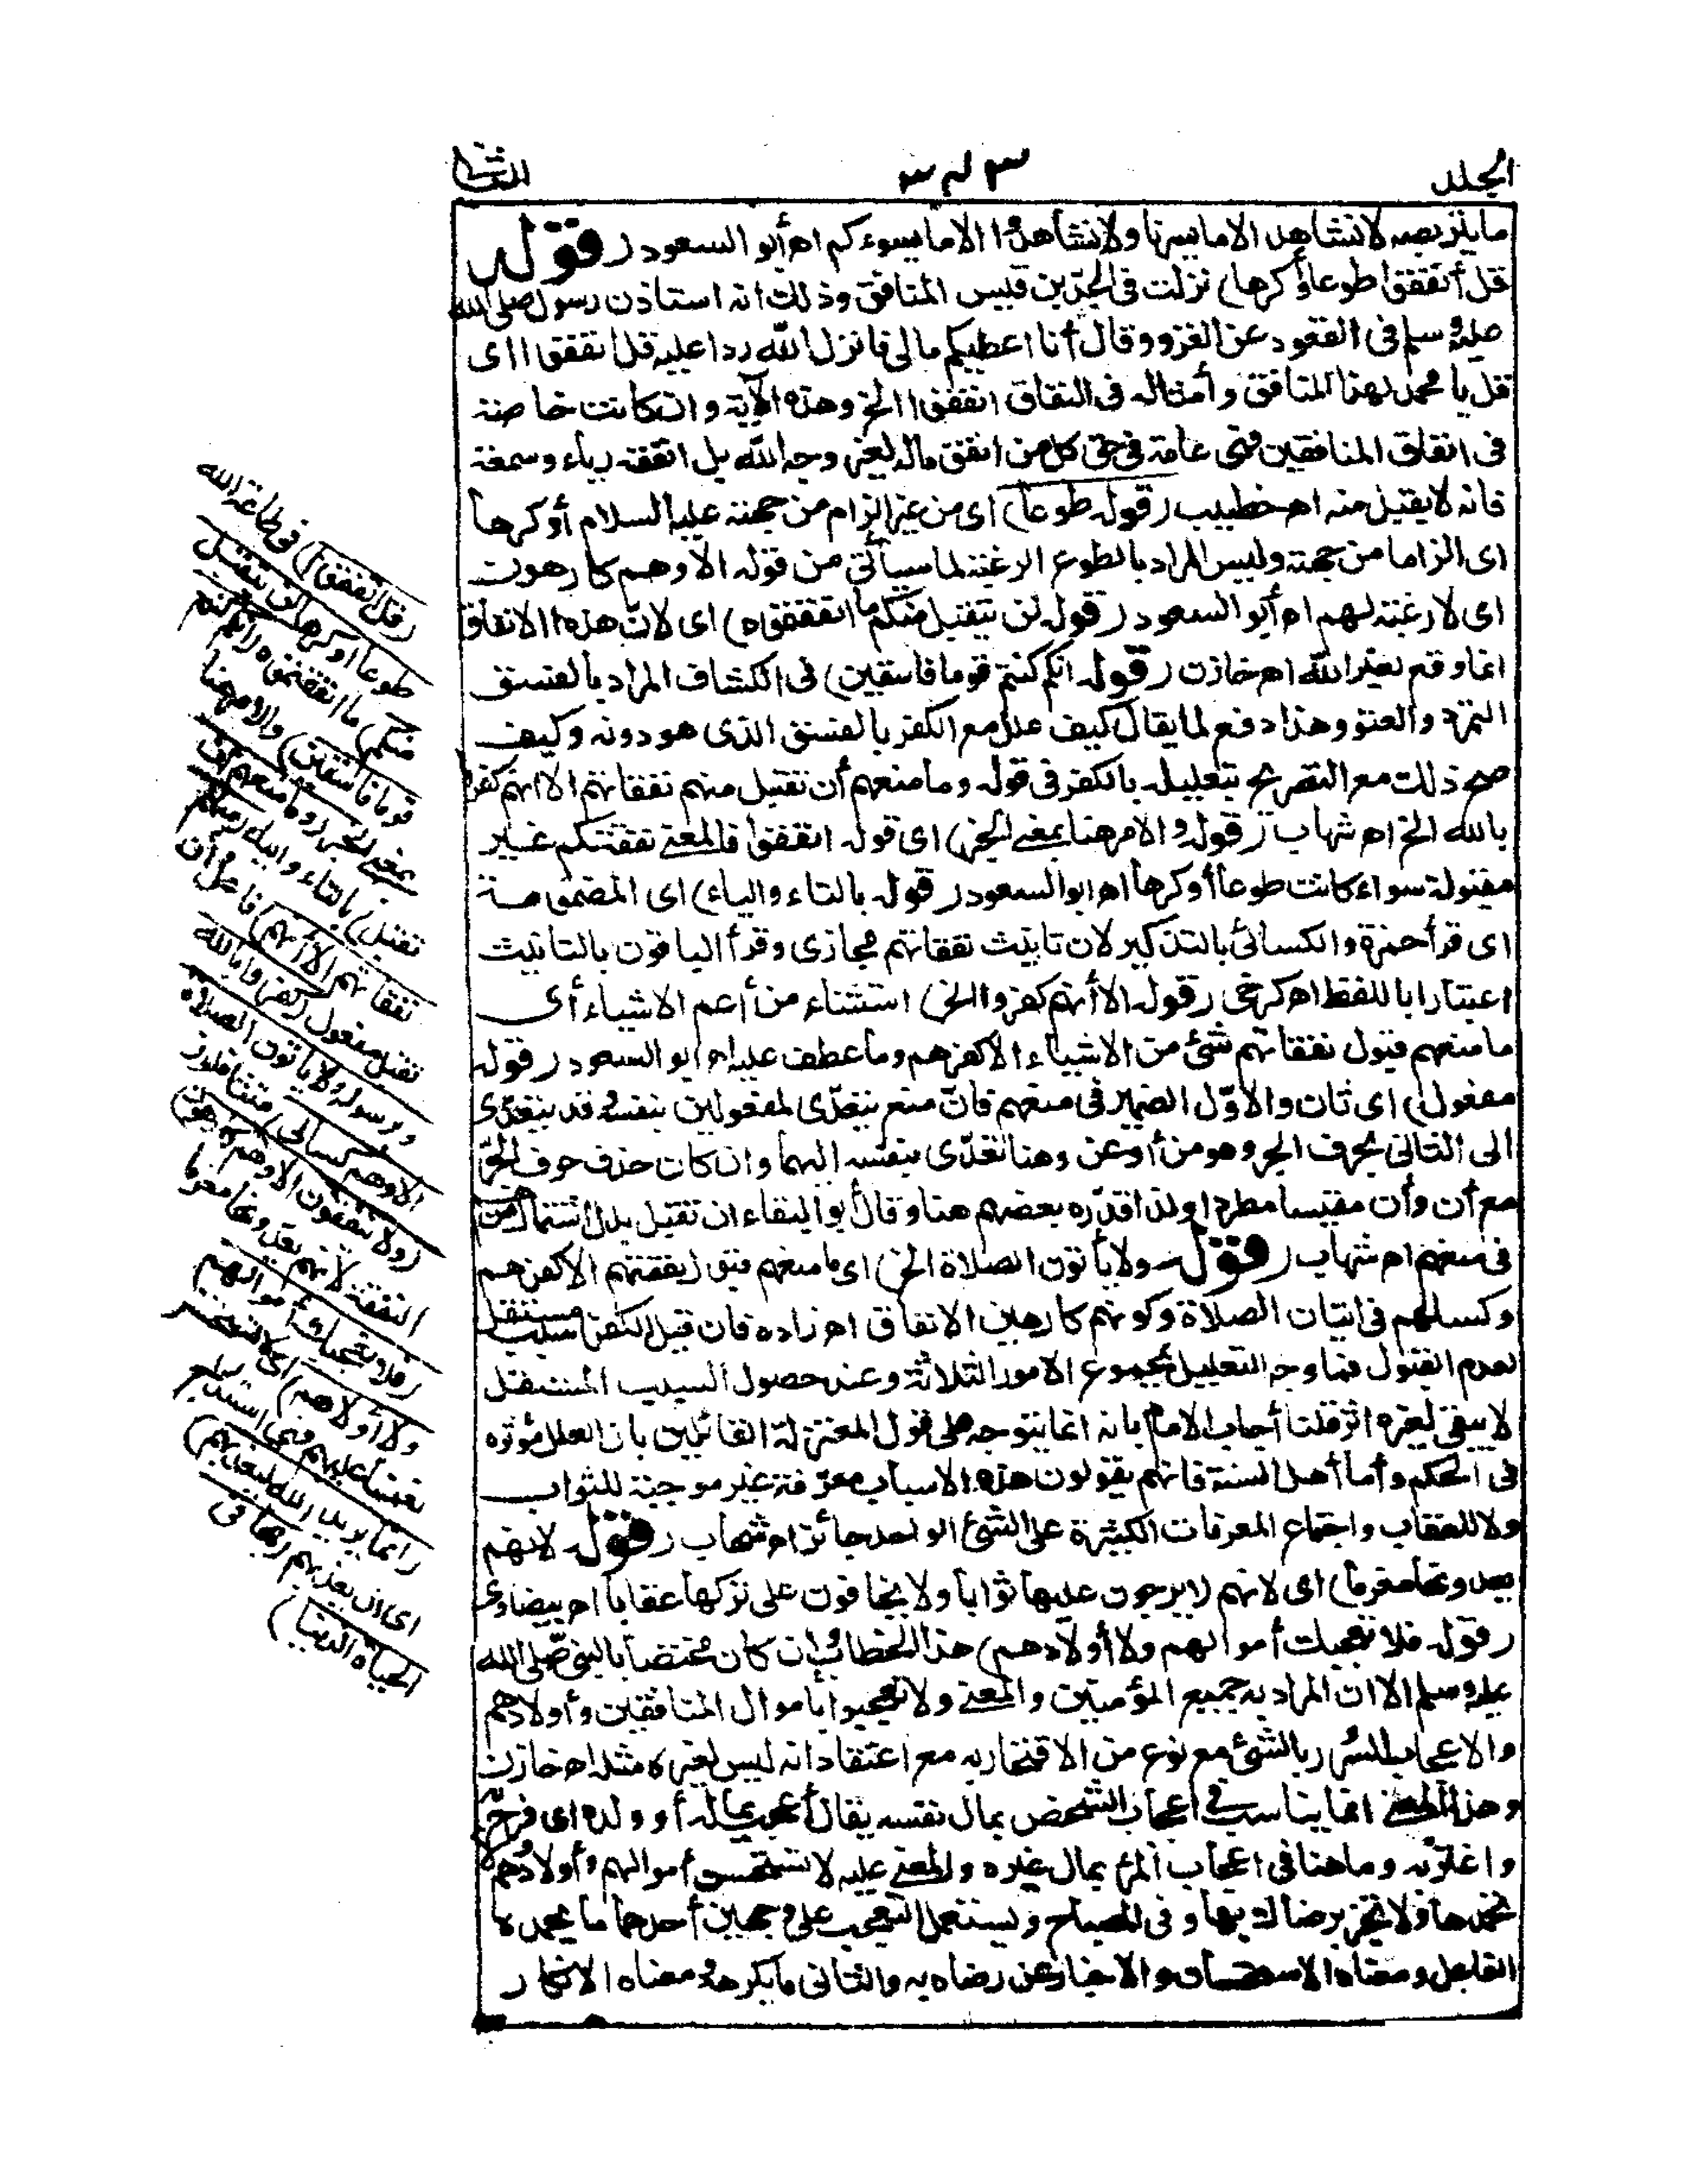 المجلد
٣٤٣
الثانى
ما يتربصه لا نشاهد الا ما يسرنا ولا تشاهدوا الا ما يسوءكم اه أبو السعود (قوله
قل أنفقوا طوعا أو كرها) نزلت فى الجد بن قيس المنافق وذلك انه استاذن رسول صلى الله
عليه وسلم فى القعود عن الغزو وقال أنا اعطيكم مالى فانزل الله ردا عليه قل انفقوا اى
قل يا محمد لهذا المنافق وأمثاله فى النفاق انفقوا الخ وهذه الآية وان كانت خاصة
فى انفاق المنافقين فهى عامة فى حق كل من انفق ماله لغير وجه الله بل انفقه رياء وسمعة
فانه لا يقبل منه اه خطيب (قوله طوعا) اى من غير الزام من جهته عليه السلام أو كرها
اى الزاما من جهته وليس المراد بالطوع الرغبة لما سيأتى من قوله الا وهم كارهون
اى لا رغبة لهم اه أبو السعود (قوله لن يتقبل منكم ما انفقتموه) اى لان هذا الانفاق
انما وقع لغير الله اه خازن (قوله انكم كنتم قوما فاسقين) فى الكشاف المراد بالفسق
التمرد والعتو وهذا دفع لما يقال كيف علل مع الكفر بالفسق الذى هو دونه وكيف
صح ذلك مع التصريح بتعليله بالكفر فى قوله وما منعهم أن تقبل منهم نفقاتهم الا انهم كفروا
بالله الخ اه شهاب (قوله والامر هنا بمعنى الخبر) اى قوله انفقوا فالمعنى نفقتكم غير
مقبولة سواء كانت طوعا أو كرها اه ابو السعود (قوله بالتاء والياء) اى المضمومة
اى قرأ حمزة والكسائى بالتذكير لان تانيث نفقاتهم مجازى وقرأ الباقون بالتانيث
اعتبارا باللفظ اه كرخى (قوله الا أنهم كفروا الخ) استثناء من أعم الاشياء أى
ما منعهم قبول نفقاتهم شئ من الاشياء الا كفرهم وما عطف عليه اه ابو السعود (قوله
مفعول) اى ثان والاول الضمير فى منعهم فان منع يتعدى لمفعولين بنفسه وقد يتعدى
الى الثانى بحرف الجر وهو من أو عن وهنا تعدى بنفسه اليهما وان كان حذف حرف الجر
مع أن وأن مقيسا مطردا ولذا قدره بعضهم هنا وقال أبو البقاء ان تقبل بدل اشتمال من هم
فى منعهم اه شهاب (قوله ولا يأتون الصلاة الخ) اى ما منعهم قبول نفقتهم الا كفرهم
وكسلهم فى اتيان الصلاة وكونهم كارهين الانفاق اه زاده فان قيل الكفر سبب مستقل
لعدم القبول فما وجه التعليل بمجموع الامور الثلاثة وعند حصول السبب المستقل
لا يبقى لغيره اثر قلنا أجاب الامام بانه انما يتوجه على قول المعتزلة القائلين بان العلل مؤثرة
فى الحكم وأما أهل السنة فانهم يقولون هذه الاسباب معرفة غير موجبة للثواب
ولا للعقاب واجتماع المعرفات الكثيرة على الشئ الواحد جائز اه شهاب (قوله لانهم
يعدونها مغرما) اى لانهم لا يرجون عليها ثوابا ولا يخافون على تركها عقابا اه بيضاوى
(قوله فلا تعجبك أموالهم ولا أولادهم) هذا الخطاب وان كان مختصا بالنبى صلى الله
عليه وسلم الا ان المراد به جميع المؤمنين والمعنى ولا تعجبوا بأموال المنافقين وأولادهم
والاعجاب السرور بالشئ مع نوع من الافتخار به مع اعتقاد انه ليس لغيره مثله اه خازن
وهذا المعنى انما يناسب فى اعجاب الشخص بمال نفسه يقال أعجب بماله أو ولده اى فرح به
واغتر به وما هنا فى اعجاب المرء بمال غيره والمعنى عليه لا تستحسن أموالهم وأولادهم ولا
تحمدها ولا تخبر برضاك بها وفى المصباح ويستعمل التعجب على وجهين أحدهما ما يحمده
الفاعل ومعناه الاستحسان والاخبار عن رضاه به والثانى ما يكرهه ومعناه الانكار
(قل انفقوا) فى طاعة الله
طوعا أو كرها لن يتقبل
منكم) ما انفقتموه (انكم كنتم
قوما فاسقين) والامر هنا
بمعنى الخبر (وما منعهم أن
تقبل) بالتاء والياء (منهم
نفقاتهم الا أنهم) فاعل وأن
تقبل مفعول (كفروا بالله
وبرسوله ولا يأتون الصلاة
الا وهم كسالى) متثاقلون
(ولا ينفقون الا وهم كارهون)
النفقة لانهم يعدونها مغرما
(فلا تعجبك أموالهم
ولا أولادهم) اى لا تستحسن
نعمنا عليهم فهى استدراج
(انما يريد الله ليعذبهم)
اى ان يعذبهم (بها فى
الحياة الدنيا)